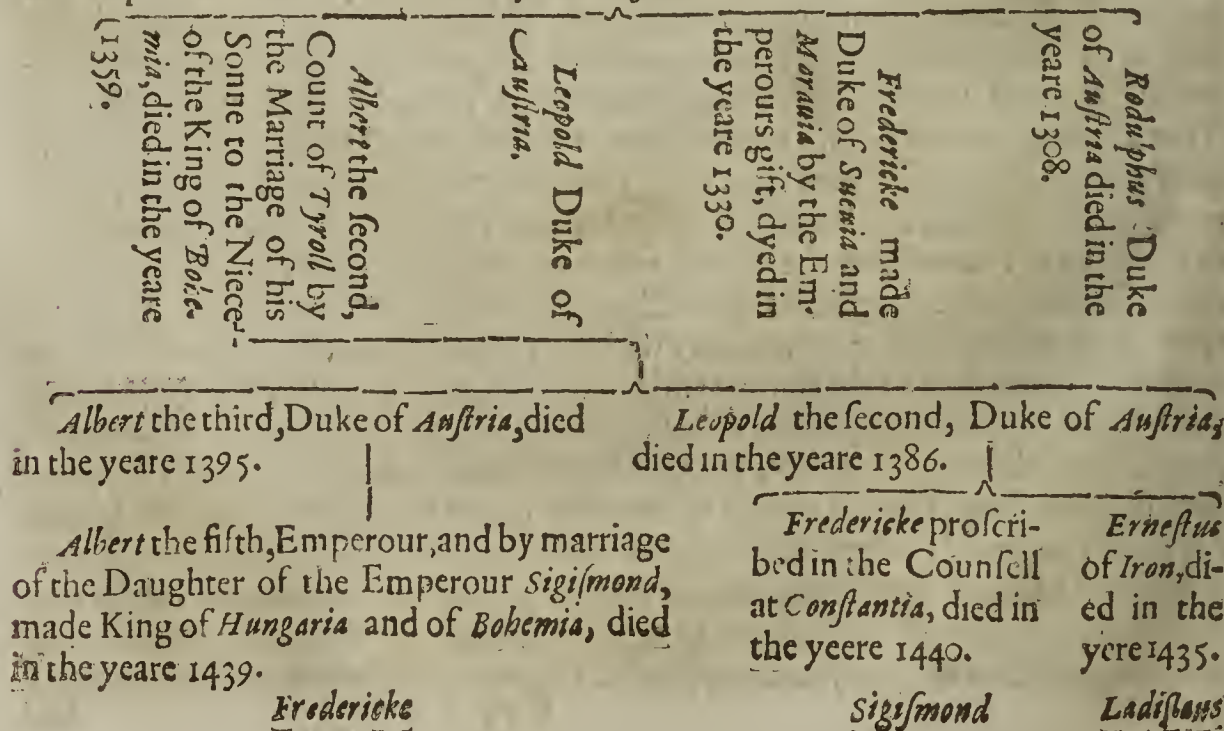 Rodu'phus Duke
of Auſtria died in the
yeare 1308.
Fredericke made
Duke of Sueuia and
Morauia by the Em-
perours gift, dyed in
the yeare 1330.
Leopold Duke of
Auſtria.
Albert the ſecond,
Count of Tyroll by
the Marriage of his
Sonne to the Niece
of the King of Bohe-
mia, died in the yeare
1359.
Albert the third, Duke of Auſtria, died
in the yeare 1395.
Leopold the ſecond, Duke of Auſtria,
died in the yeare 1386.
Albert the fifth, Emperour, and by marriage
of the Daughter of the Emperour Sigiſmond,
made King of Hungaria and of Bohemia, died
in the yeare 1439.
Fredericke proſcri-
bed in the Counſell
at Conſtantia, died in
the yeere 1440.
Erneſtus
of Iron, di-
ed in the
yere 1435.
Fredericke
Sigiſmond
Ladiſlaus